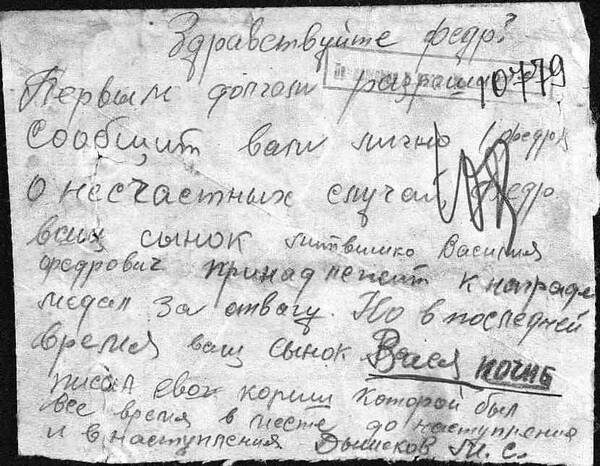 Здравствуйте федр?
Первым долгом разреши 10779
Сообщит вам лично федр
о несчастных случай федр
ваш сынок литвишко Василия
федрович принадлежит к награде
медал за отвагу. Но в последней
время ваш сынок Вася погиб
писал евог кориш которой был
все время в месте до наступления
и в наступления М. С.